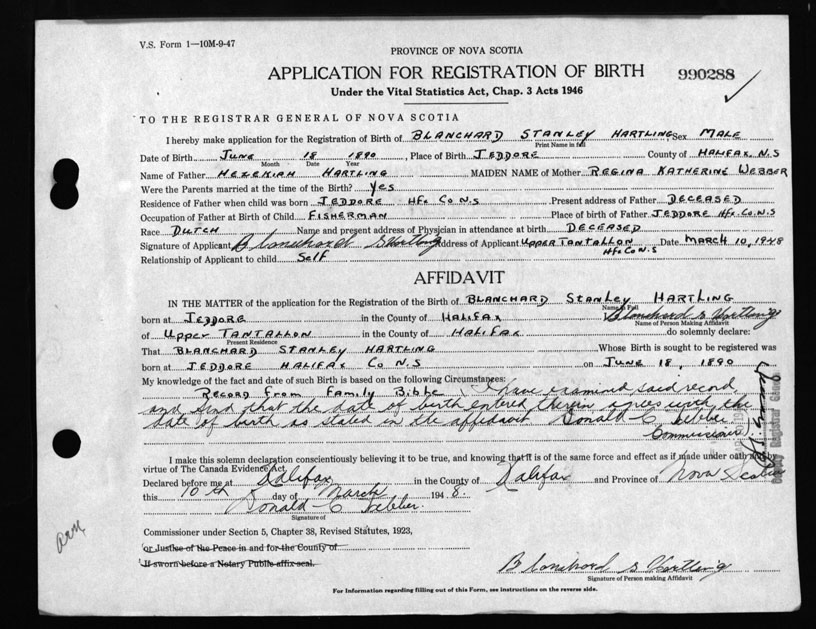 V.S. Form 1—10M-9-47
PROVINCE OF NOVA SCOTIA
APPLICATION FOR REGISTRATION OF BIRTH
990288
Under the Vital Statistics Act, Chap. 3 Acts 1946
TO THE REGISTRAR GENERAL OF NOVA SCOTIA
I hereby make application for the Registration of Birth of BLANCHARD STANLEY HARTLING Sex MALE
Print Name in full
Date of Birth June 18 1890, Place of Birth JEDDORE County of HALIFAX, N.S
Month Date Year
Name of Father HEZEKIAH HARTLING MAIDEN NAME of Mother REGINA KATHERINE WEBBER
Were the Parents married at the time of the Birth? Yes
Residence of Father when child was born JEDDORE Hfx Co N.S Present address of Father DECEASED
Occupation of Father at Birth of Child FISHERMAN Place of birth of Father JEDDORE Hfx. Co. N.S
Race DUTCH Name and present address of Physician in attendance at birth DECEASED
Signature of Applicant Blanchard S Hartling Address of Applicant UPPER TANTALLON Date MARCH 10, 1948
Hfx Co N.S
Relationship of Applicant to child Self
AFFIDAVIT
IN THE MATTER of the application for the Registration of the Birth of BLANCHARD STANLEY HARTLING
Name in Full
born at JEDDORE in the County of HALIFAX Blanchard S Hartling
Name of Person Making Affidavit
of UPPER TANTALLON in the County of HALIFAX do solemnly declare:
Present Residence
That BLANCHARD STANLEY HARTLING Whose Birth is sought to be registered was
born at JEDDORE HALIFAX Co N.S on JUNE 18 1890
My knowledge of the fact and date of such Birth is based on the following Circumstances:
RECORD FROM FAMILY BIBLE I have examined said record
and find that the date of birth entered therein agrees with the
date of birth as stated in the affidavit Donald C Webber
Commissioner
Deputy Registrar General
I make this solemn declaration conscientiously believing it to be true, and knowing that it is of the same force and effect as if made under oath and by
virtue of The Canada Evidence Act.
Declared before me at Halifax in the County of Halifax and Province of Nova Scotia
this 10th day of March 1948.
Donald C Webber.
Signature of
Commissioner under Section 5, Chapter 38, Revised Statutes, 1923,
or Justice of the Peace in and for the County of
If sworn before a Notary Public affix seal.
Blanchard S Hartling
Signature of Person making Affidavit
For Information regarding filling out of this Form, see instructions on the reverse side.